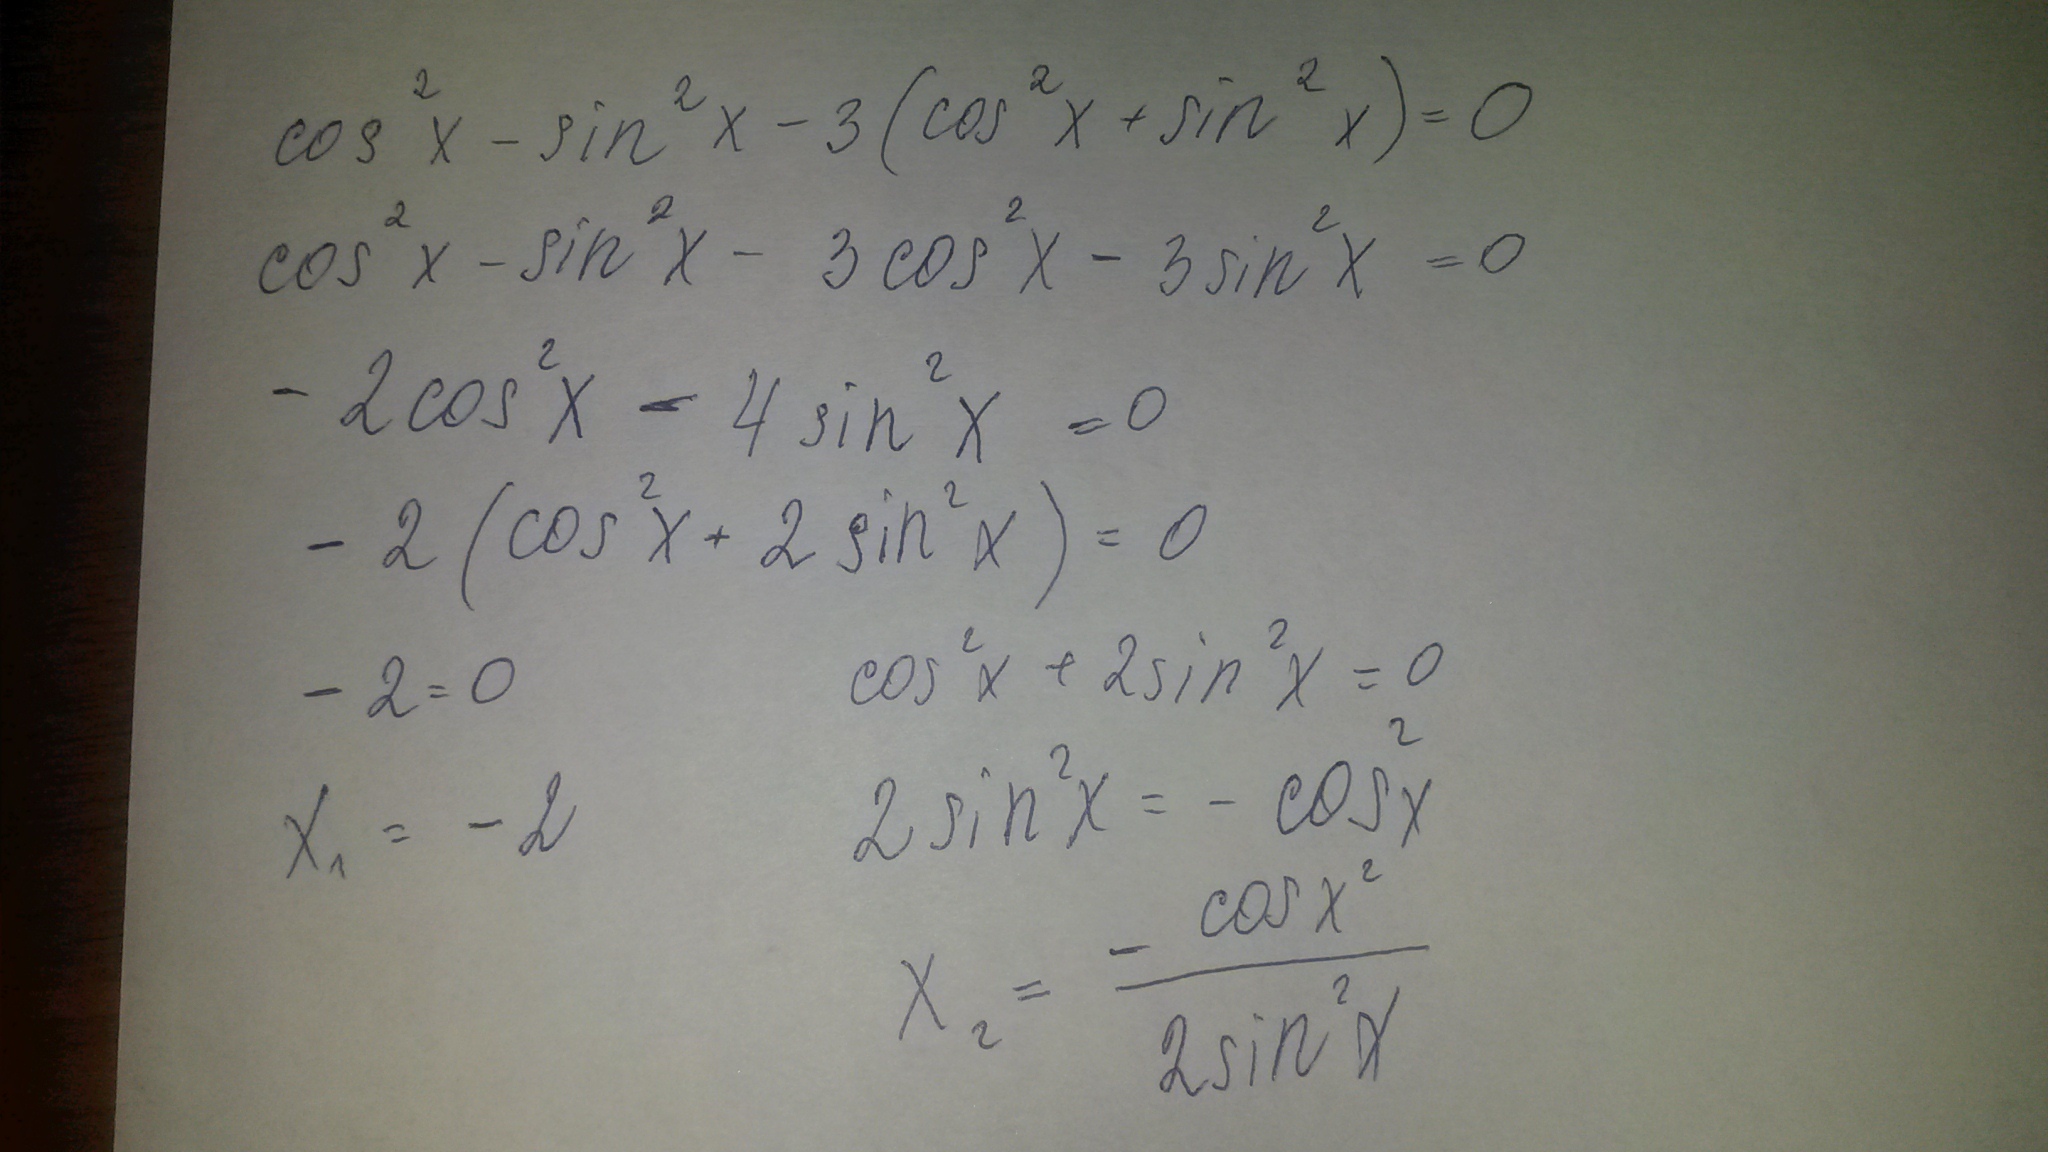 cos²x - sin²x - 3(cos²x + sin²x) = 0
cos²x - sin²x - 3cos²x - 3sin²x = 0
- 2cos²x - 4sin²x = 0
- 2(cos²x + 2sin²x) = 0
- 2 = 0 cos²x + 2sin²x = 0
x₁ = - 2 2sin²x = - cos²x
x₂ = - cosx² / 2sin²x